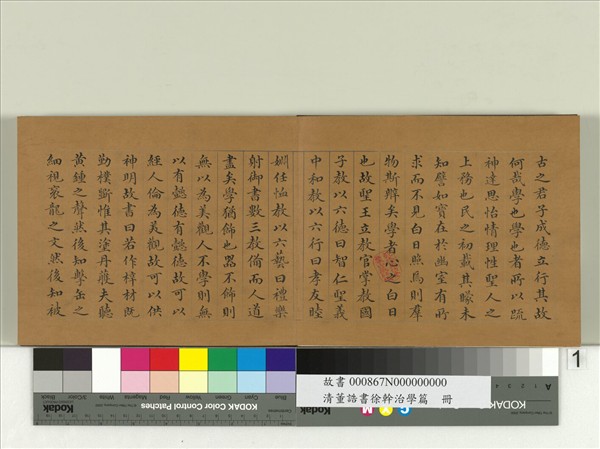 古之君子成德立行其故
何哉學也學也者所以疏
神達思怡情理性聖人之
上務也民之初載其矇未
知譬如寶在於幽室有所
求而不見白日照焉則羣
物斯辯矣學者心之白日
也故聖王立教官掌教國
子教以六德曰智仁聖義
中和教以六行曰孝友睦
婣任恤教以六藝曰禮樂
射御書數三教備而人道
盡矣學猶飾也器不飾則
無以為美觀人不學則無
以有懿德有懿德故可以
經人倫為美觀故可以供
神明故書曰若作梓材既
勤樸斲惟其塗丹雘夫聽
黃鍾之聲然後知擊缶之
細視袞龍之文然後知被
1
故書 000867N000000000
清董誥書徐幹治學篇 冊
Kodak Color Control Patches
KODAK
Kodak
A